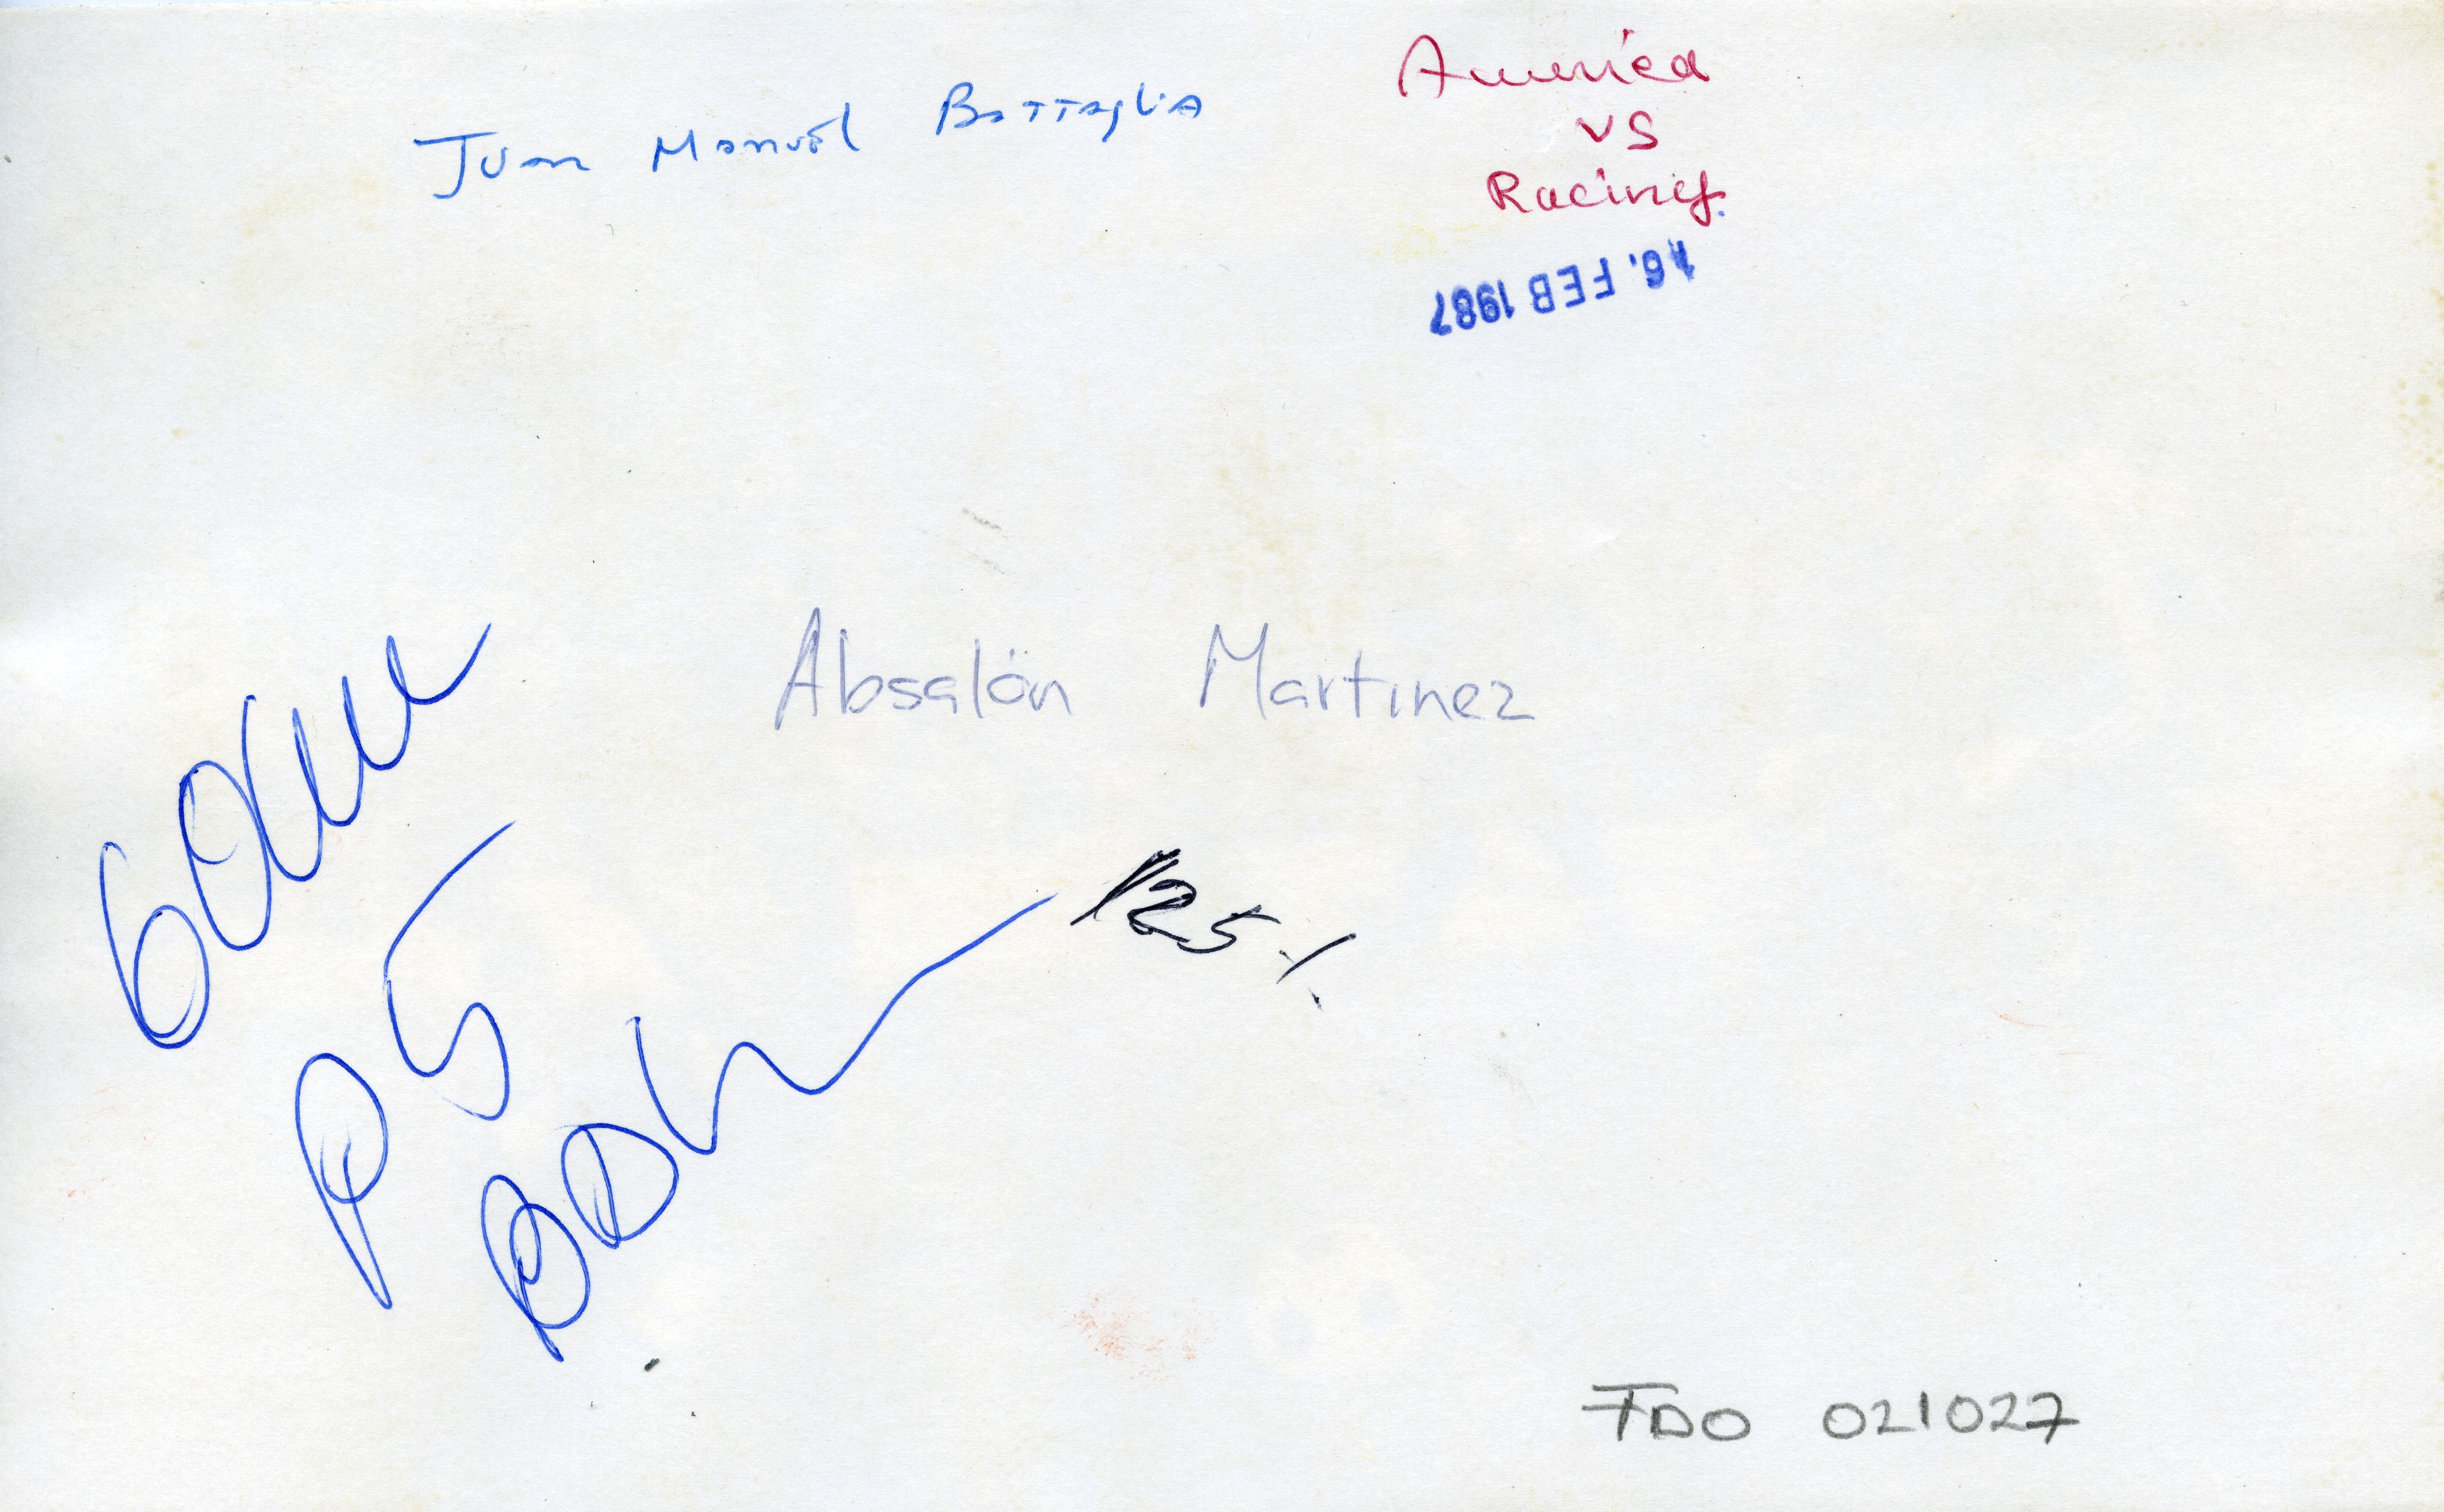 Juan Manuel Battaglia
America
vs
Racing.
16. FEB 1987
Absalón Martinez
60cuu
P5
125%
FDO 021027